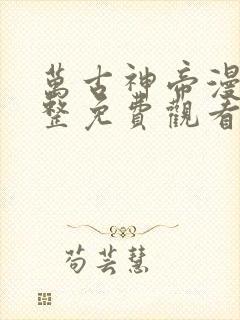 萬古神帝漫
整免費觀看
苟芸慧